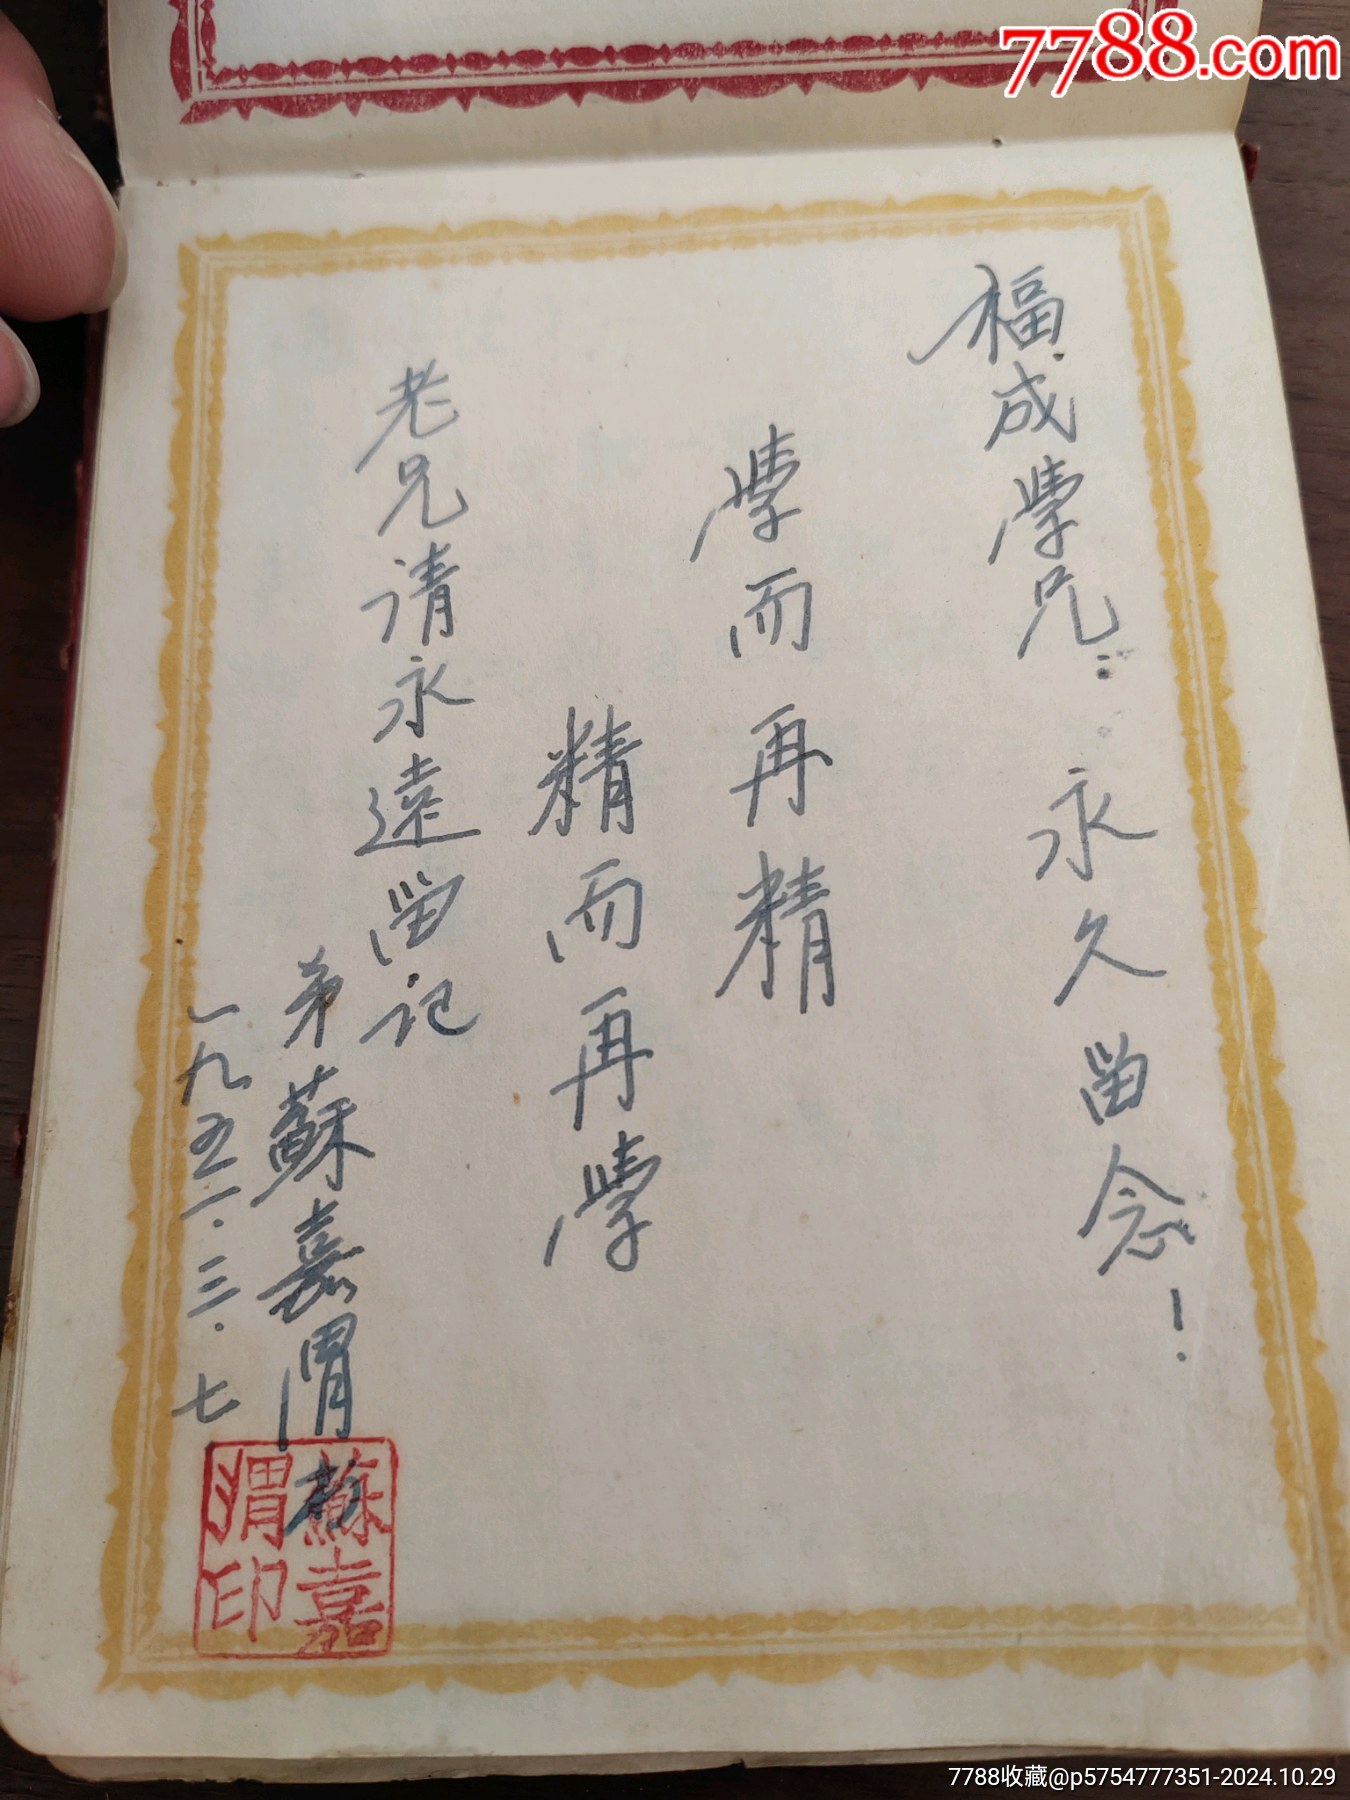 7788.com
福成學兄：永久留念！
學而再精
精而再學
老兄请永遠留記
弟蘇嘉渭
一九五一.三.七
蘇嘉
渭印
7788收藏@p5754777351-2024.10.29